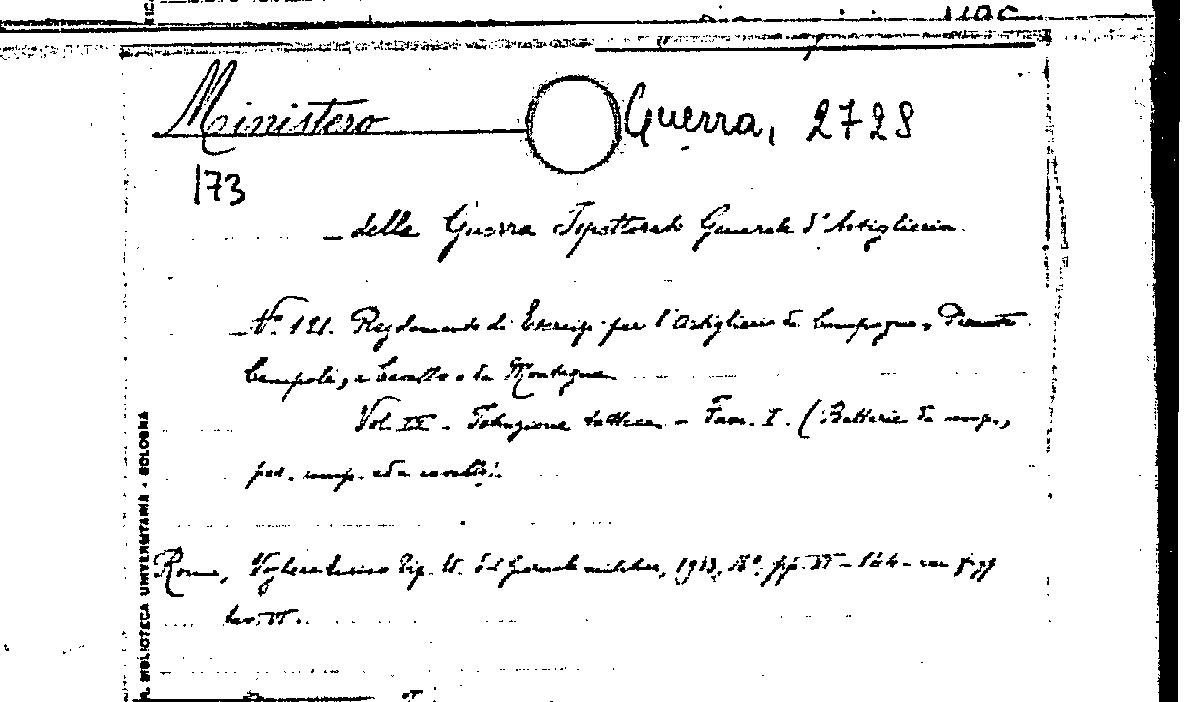 Ministero Guerra, 2728
173
_ della Guerra Ispettorato Generale d'Artiglieria.
_ N.° 121. Regolamento di Esercizi per l'Artiglieria da Campagna,
a Cavallo e da Montagna
Vol. II - Istruzione tattica - Fasc. I. (Batterie da camp.,
camp. ed a cavallo).
Roma, Voghera Enrico Tip. Ed. del Giornale militare, 1913, 16°, pp. - 144 - con figg
tav.
R. BIBLIOTECA UNIVERSITARIA - BOLOGNA